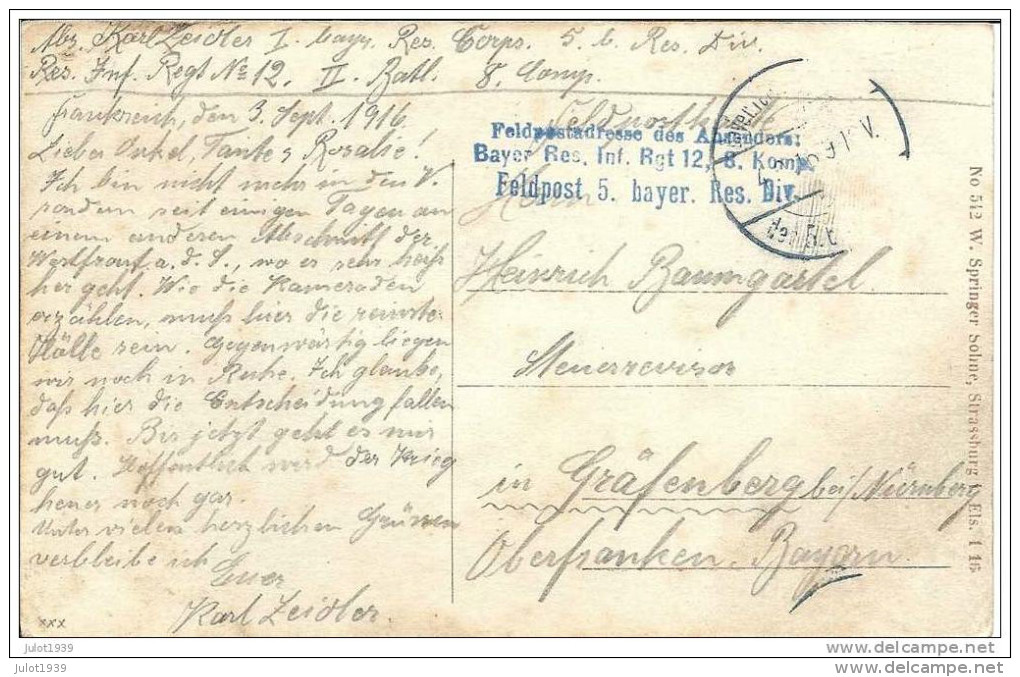 Abs. Karl Zeidler I. bayr. Res. Corps. 5. b. Res. Div.
Res. Inf. Regt No 12. II. Batl. 8. Comp.
Frankreich, den 3. Sept. 1916.
Lieber Onkel, Tante u Rosalie!
Ich bin nicht mehr in den V.
sondern seit einigen Tagen an
einem anderen Abschnitt der
Westfront a. d. S., wo es sehr heiß
her geht. Wie die Kameraden
erzählen, muß hier die reinste
Hölle sein. Gegenwärtig liegen
wir noch in Ruhe. Ich glaube,
daß hier die Entscheidung fallen
muß. Bis jetzt geht es mir
gut. Hoffentlich wird der Krieg
heuer noch gar.
Unter vielen herzlichen Grüssen
verbleibe ich
Euer
Karl Zeidler.
xxx
Feldpostkarte
Feldpostadresse des Absenders:
Bayer Res. Inf. Rgt 12, 8. Komp.
Feldpost 5. bayer. Res. Div.
Herrn
Heinrich Baumgärtel.
Steuerrevisor
in Gräfenberg bei/Nürnberg
Oberfranken. Bayern.
No 512 W. Springer Söhne, Strassburg i. Els. 1 16
julot1939
julot1939
julot1939
julot1939